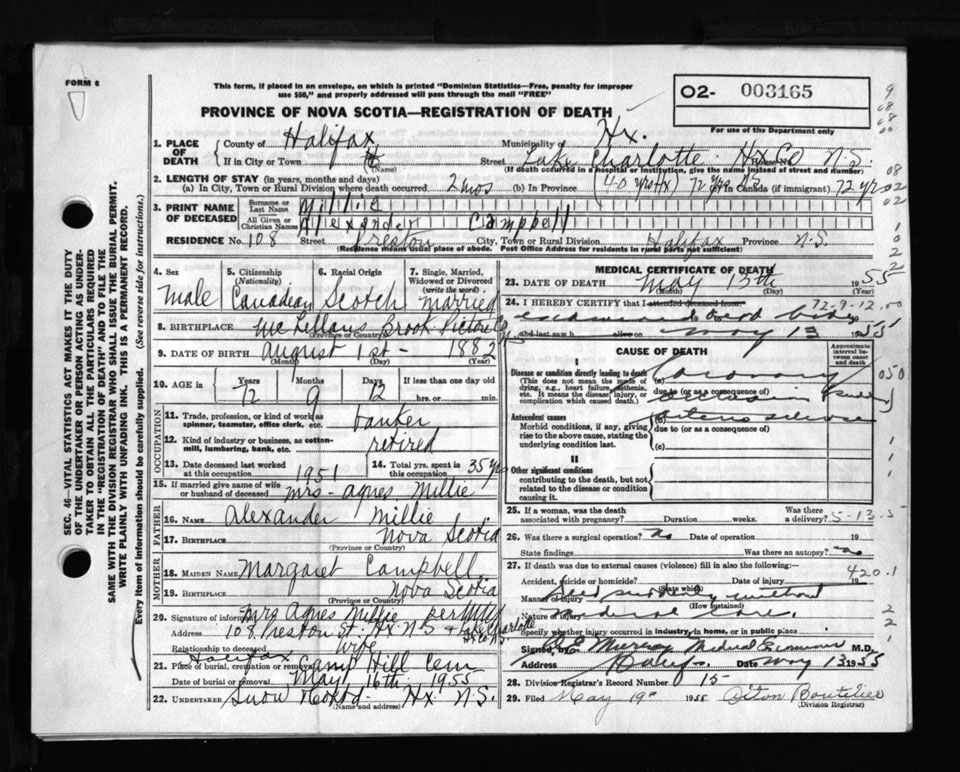 FORM 6
This form, if placed in an envelope, on which is printed "Dominion Statistics—Free, penalty for improper
use $50," and properly addressed will pass through the mail "FREE"
PROVINCE OF NOVA SCOTIA—REGISTRATION OF DEATH
02- 003165
For use of the Department only
SEC. 46 - VITAL STATISTICS ACT MAKES IT THE DUTY
OF THE UNDERTAKER OR PERSON ACTING AS UNDER-
TAKER TO OBTAIN ALL THE PARTICULARS REQUIRED
IN THE "REGISTRATION OF DEATH" AND TO FILE THE
SAME WITH THE DIVISION REGISTRAR WHO SHALL ISSUE THE BURIAL PERMIT.
WRITE PLAINLY WITH UNFADING INK. THIS IS A PERMANENT RECORD.
Every item of information should be carefully supplied. (See reverse side for instructions.)
1. PLACE OF DEATH County of Halifax Municipality Hx.
If in City or Town (Name) Street Lake Charlotte Hx Co N.S. House No.
(If death occurred in a hospital or institution, give the name instead of street and number)
2. LENGTH OF STAY (in years, months and days)
(a) In City, Town or Rural Division where death occurred 2 mos (b) In Province (40 yrs Hx) 72 yrs NS In Canada (if immigrant) 72 yr
3. PRINT NAME OF DECEASED Surname or Last Name Millie
All Given or Christian Names Alexander Campbell
RESIDENCE No. 108 Street Preston City, Town or Rural Division Halifax Province N.S.
(Residence means usual place of abode. Post Office Address for residents in rural parts not sufficient)
4. Sex Male
5. Citizenship (Nationality) Canadian
6. Racial Origin Scotch
7. Single, Married, Widowed or Divorced (write the word) Married
8. BIRTHPLACE McLellans Brook Pictou Co NS
(Province or Country)
9. DATE OF BIRTH August 1st - 1882
(Month) (Day) (Year)
10. AGE in Years 72 Months 9 Days 12 If less than one day old hrs. or min.
OCCUPATION
11. Trade, profession, or kind of work as spinner, teamster, office clerk, etc. banker
12. Kind of industry or business, as cotton-mill, lumbering, bank, etc. retired
13. Date deceased last worked at this occupation 1951
14. Total yrs. spent in this occupation 35 yrs
15. If married give name of wife or husband of deceased Mrs - Agnes Millie
FATHER
16. NAME Alexander Millie
17. BIRTHPLACE Nova Scotia
(Province or Country)
MOTHER
18. MAIDEN NAME Margaret Campbell
19. BIRTHPLACE Nova Scotia
(Province or Country)
20. Signature of informant Mrs Agnes Millie per
Address 108 Preston St. Hx N S & Lake Charlotte Hx Co N S
Relationship to deceased wife
21. Place of burial, cremation or removal Halifax Camp Hill Cem
Date of burial or removal May 16th 1955
22. UNDERTAKER Snow Hx. N.S.
(Name and address)
MEDICAL CERTIFICATE OF DEATH
23. DATE OF DEATH May 13th 1955
(Month) (Day) (Year)
24. I HEREBY CERTIFY that I attended deceased from 72-9-12
examined dead body
and last saw h alive on May 13 1955
CAUSE OF DEATH
Approximate interval between onset and death
I
Disease or condition directly leading to death
(This does not mean the mode of dying, e.g., heart failure, asthenia, etc. It means the disease, injury, or complication which caused death.)
(a) Coronary
due to (or as a consequence of) occlusion sudden
Antecedent causes
Morbid conditions, if any, giving rise to the above cause, stating the underlying condition last.
(b) Arterio sclerosis
due to (or as a consequence of)
(c)
II
Other significant conditions
contributing to the death, but not related to the disease or condition causing it.
25. If a woman, was the death associated with pregnancy? Duration weeks. Was there a delivery? 5-13-5
26. Was there a surgical operation? no Date of operation 19
State findings Was there an autopsy? no
27. If death was due to external causes (violence) fill in also the following: 420.1
Accident, suicide or homicide? (State which) Date of injury 19
Manner of injury Died suddenly without
(How sustained)
Nature of injury medical care.
Specify whether injury occurred in industry, in home, or in public place
Signed by Murray Medical Examiner M.D.
Address Halifax Date May 13 1955
28. Division Registrar's Record Number 15-
29. Filed May 19th 1955 Aiton Boutilier
(Division Registrar)